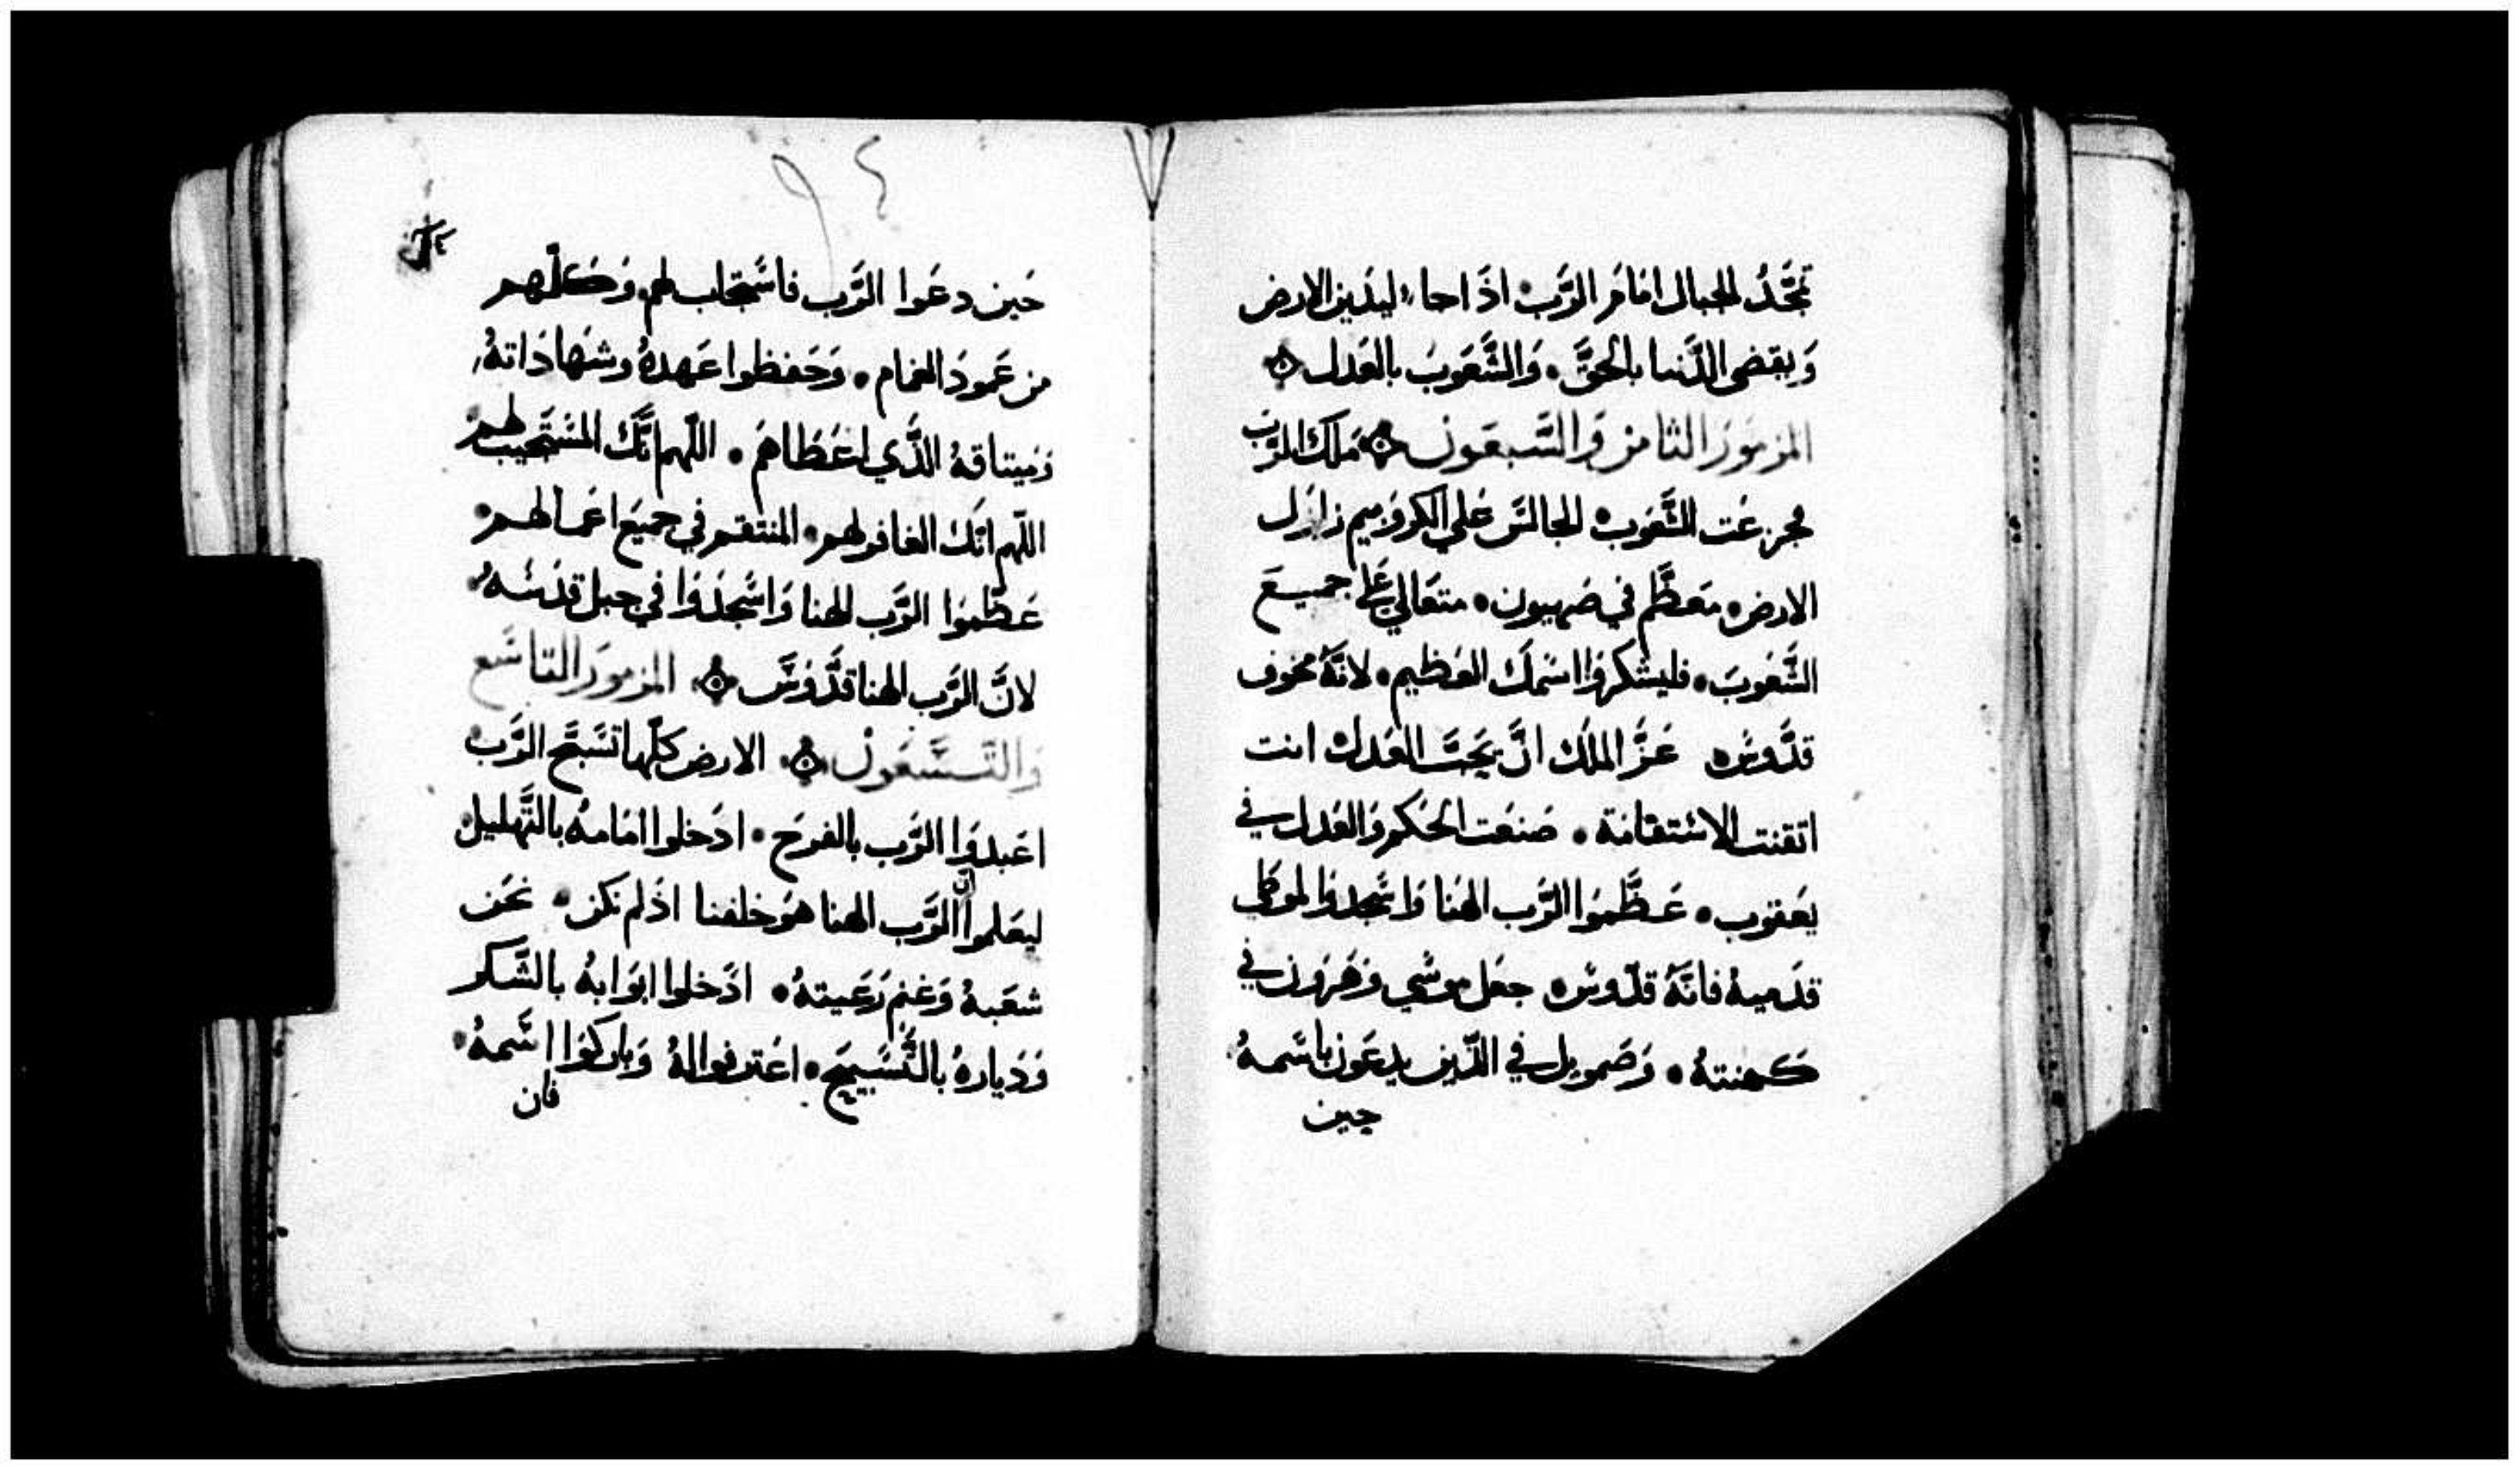 تمجّد الجبال امام الرّب اذا جاء ليدين الارض
ويقضي الدّنيا بالحقّ والشّعوب بالعدل
المزمور الثامن والتسعون ملك الرّب
فجزعت الشّعوب الجالس علي الكروبيم زلزل
الارض معظّم في صهيون متعالي علي جميع
الشّعوب فليشكروا اسمك العظيم لانّه مخوف
قدّوس عزّ الملك ان يحبّ العدل انت
اتقنت الاستقامة صنعت الحكم والعدل في
يعقوب عظّموا الرّب الهنا واسجدوا لموطي
قدميه فانّه قدّوس جعل موسي وهرون في
كهنته وصمويل في الذّين يدعون باسمه
حين
٩٤
حين دعوا الرّب فاستجاب لهم وكلّهم
من عمود الغمام وحفظوا عهده وشهاداته
وميثاقه الذّي اعطاهم اللّهم انّك المستجيب لهم
اللّهم انّك الغافر لهم المنتقم في جميع اعمالهم
عظّموا الرّب الهنا واسجدوا في جبل قدسه
لانّ الرّب الهنا قدّوس المزمور التاسع
والتسعون الارض كلّها تسبّح الرّب
اعبدوا الرّب بالفرح ادخلوا امامه بالتّهليل
ليعلموا ان الرّب الهنا هو خلقنا اذ لم نكن نحن
شعبه وغنم رعيته ادخلوا ابوابه بالشّكر
ودياره بالتّسبيح اعترفوا له وباركوا اسمه
فان